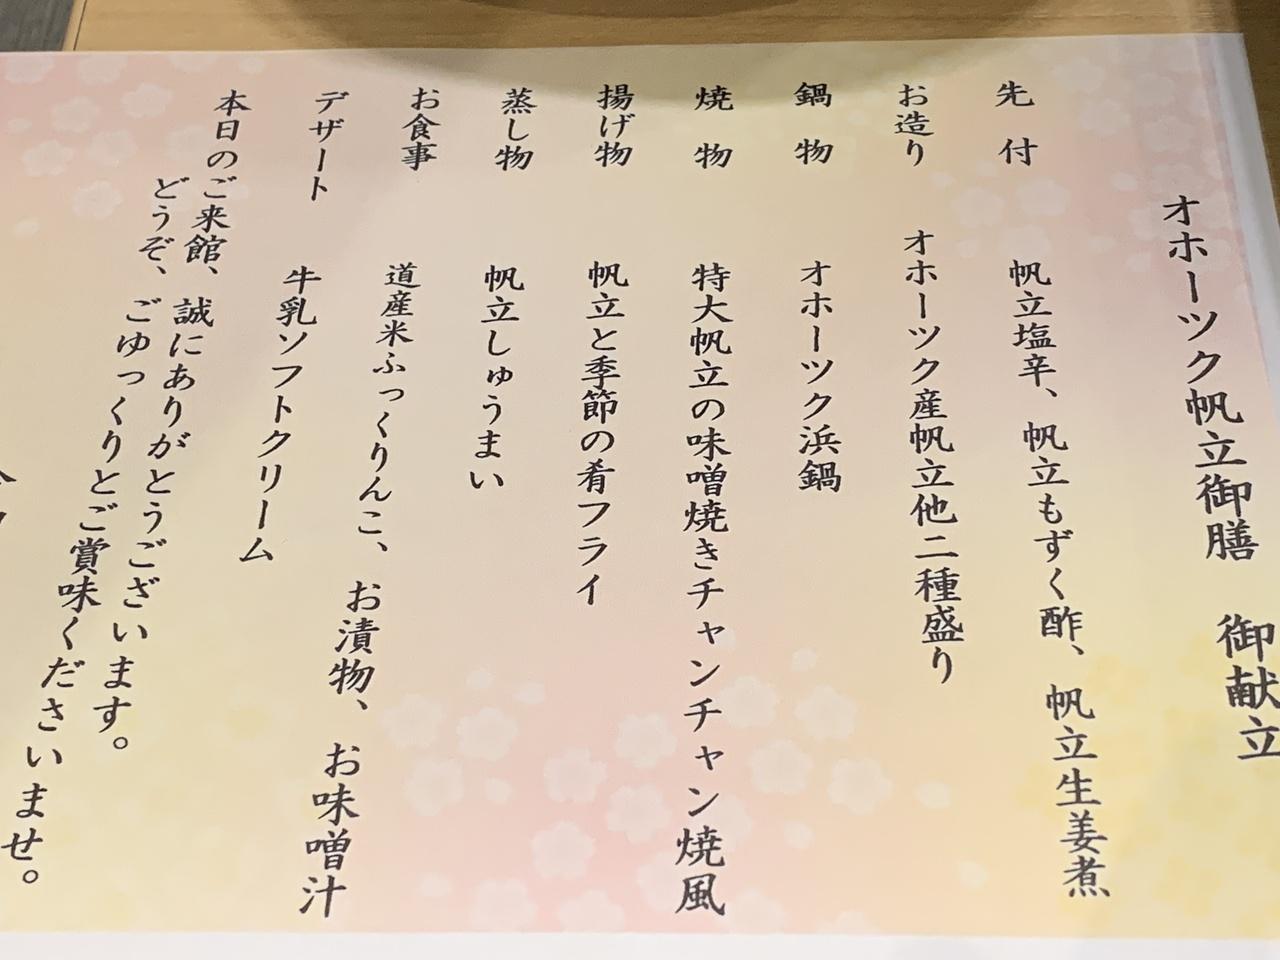 オホーツク帆立御膳　御献立
先　付　帆立塩辛、帆立もずく酢、帆立生姜煮
お造り　オホーツク産帆立他二種盛り
鍋　物　オホーツク浜鍋
焼　物　特大帆立の味噌焼きチャンチャン焼風
揚げ物　帆立と季節の肴フライ
蒸し物　帆立しゅうまい
お食事　道産米ふっくりんこ、お漬物、お味噌汁
デザート　牛乳ソフトクリーム
本日のご来館、誠にありがとうございます。
どうぞ、ごゆっくりとご賞味くださいませ。